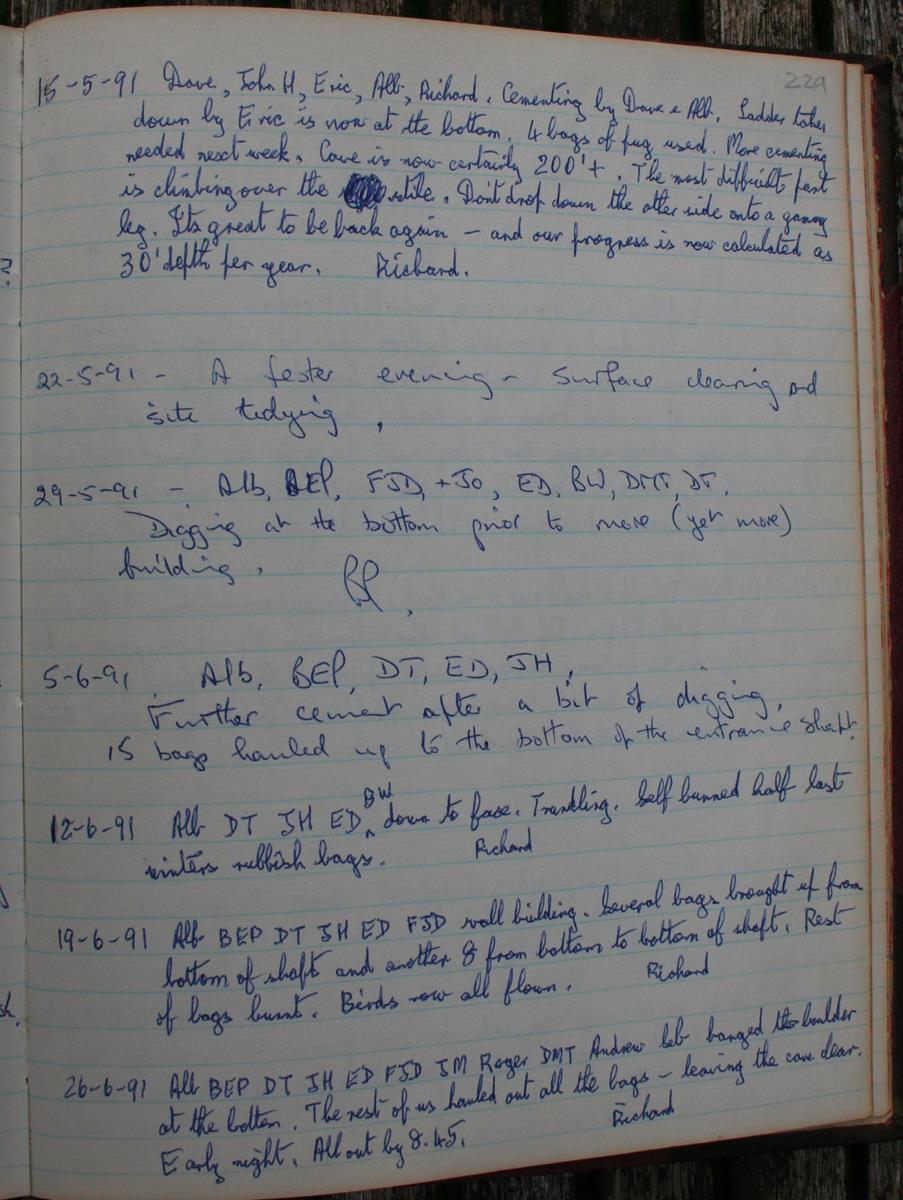 229
15-5-91 Dave, John H, Eric, Alb, Richard. Cementing by Dave & Alb. Ladder taken
down by Eric is now at the bottom. 4 bags of fug used. More cementing
needed next week. Cave is now certainly 200'+. The most difficult part
is climbing over the stile. Don't drop down the other side onto a gammy
leg. Its great to be back again – and our progress is now calculated as
30' depth per year. Richard.
22-5-91 - A fester evening - Surface clearing and
site tidying.
29-5-91 - Alb, BEP, FJD, + Jo, ED, BW, DMT, DT.
Digging at the bottom prior to more (yet more)
building.
BP.
5-6-91 Alb, BEP, DT, ED, JH,
Further cement after a bit of digging.
15 bags hauled up to the bottom of the entrance shaft.
BW
12-6-91 Alb DT JH ED ^ down to face. Trundling. Self burned half last
winters rubbish bags. Richard
19-6-91 Alb BEP DT JH ED FJD wall building. Several bags brought up from
bottom of shaft and another 8 from bottom to bottom of shaft. Rest
of bags burnt. Birds now all flown. Richard
26-6-91 Alb BEP DT JH ED FJD JM Roger DMT Andrew banged the boulder
at the bottom. The rest of us hauled out all the bags – leaving the cave clear.
Early night. All out by 8.45. Richard
?
sh.